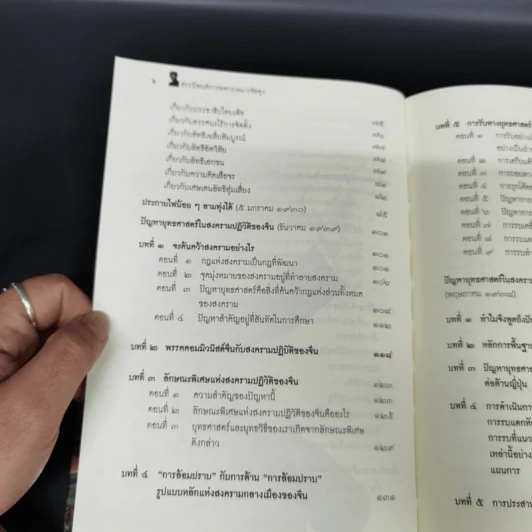 ๖ สรรนิพนธ์การทหารเหมาเจ๋อตุง
เกี่ยวกับประชาธิปไตยเฟ้อ ๗๕
เกี่ยวกับทรรศนะไร้การจัดตั้ง ๗๖
เกี่ยวกับลัทธิเฉลี่ยสัมบูรณ์ ๗๖
เกี่ยวกับลัทธิอัตวิสัย ๗๗
เกี่ยวกับลัทธิเอกชน ๗๘
เกี่ยวกับความคิดเสือจร ๘๑
เกี่ยวกับเศษเดนลัทธิสุ่มเสี่ยง ๘๒
ประกายไฟน้อย ๆ ลามทุ่งได้ (๕ มกราคม ๑๙๓๐) ๘๕
ปัญหายุทธศาสตร์ในสงครามปฏิวัติของจีน (ธันวาคม ๑๙๓๖) ๑๐๑
บทที่ ๑ จะค้นคว้าสงครามอย่างไร ๑๐๑
ตอนที่ ๑ กฎแห่งสงครามเป็นกฎที่พัฒนา ๑๐๑
ตอนที่ ๒ จุดมุ่งหมายของสงครามอยู่ที่ทำลายสงคราม ๑๐๖
ตอนที่ ๓ ปัญหายุทธศาสตร์คือสิ่งที่ค้นคว้ากฎแห่งส่วนทั้งหมด
ของสงคราม ๑๐๘
ตอนที่ ๔ ปัญหาสำคัญอยู่ที่สันทัดในการศึกษา ๑๑๒
บทที่ ๒ พรรคคอมมิวนิสต์จีนกับสงครามปฏิวัติของจีน ๑๑๘
บทที่ ๓ ลักษณะพิเศษแห่งสงครามปฏิวัติของจีน ๑๒๓
ตอนที่ ๑ ความสำคัญของปัญหานี้ ๑๒๓
ตอนที่ ๒ ลักษณะพิเศษแห่งสงครามปฏิวัติของจีนคืออะไร ๑๒๕
ตอนที่ ๓ ยุทธศาสตร์และยุทธวิธีของเราเกิดจากลักษณะพิเศษ
ดังกล่าว ๑๒๙
บทที่ ๔ “การล้อมปราบ” กับการต้าน “การล้อมปราบ”
รูปแบบหลักแห่งสงครามกลางเมืองของจีน ๑๓๑
บทที่ ๕ การรับทางยุทธศาสตร์
ตอนที่ ๑ การรับอย่าง
อย่างเป็นฝ่าย
ตอนที่ ๒ การเตรียม
ตอนที่ ๓ การถอย
ตอนที่ ๔ การรุกโต้
ตอนที่ ๕ ปัญหาการ
ตอนที่ ๖ ปัญหา
ตอนที่ ๗ การรบ
ตอนที่ ๘ การรบ
ตอนที่ ๙ การรบ
ปัญหายุทธศาสตร์ในสงคราม
(พฤษภาคม ๑๙๓๘)
บทที่ ๑ ทำไมจึงพูดถึงปัญ
บทที่ ๒ หลักการพื้นฐาน
บทที่ ๓ ปัญหายุทธศาส
ต่อต้านญี่ปุ่น
บทที่ ๔ การดำเนินการ
การรบแตกหัก
การรบที่แนว
เหล่านี้อย่าง
แผนการ
บทที่ ๕ การประสาน